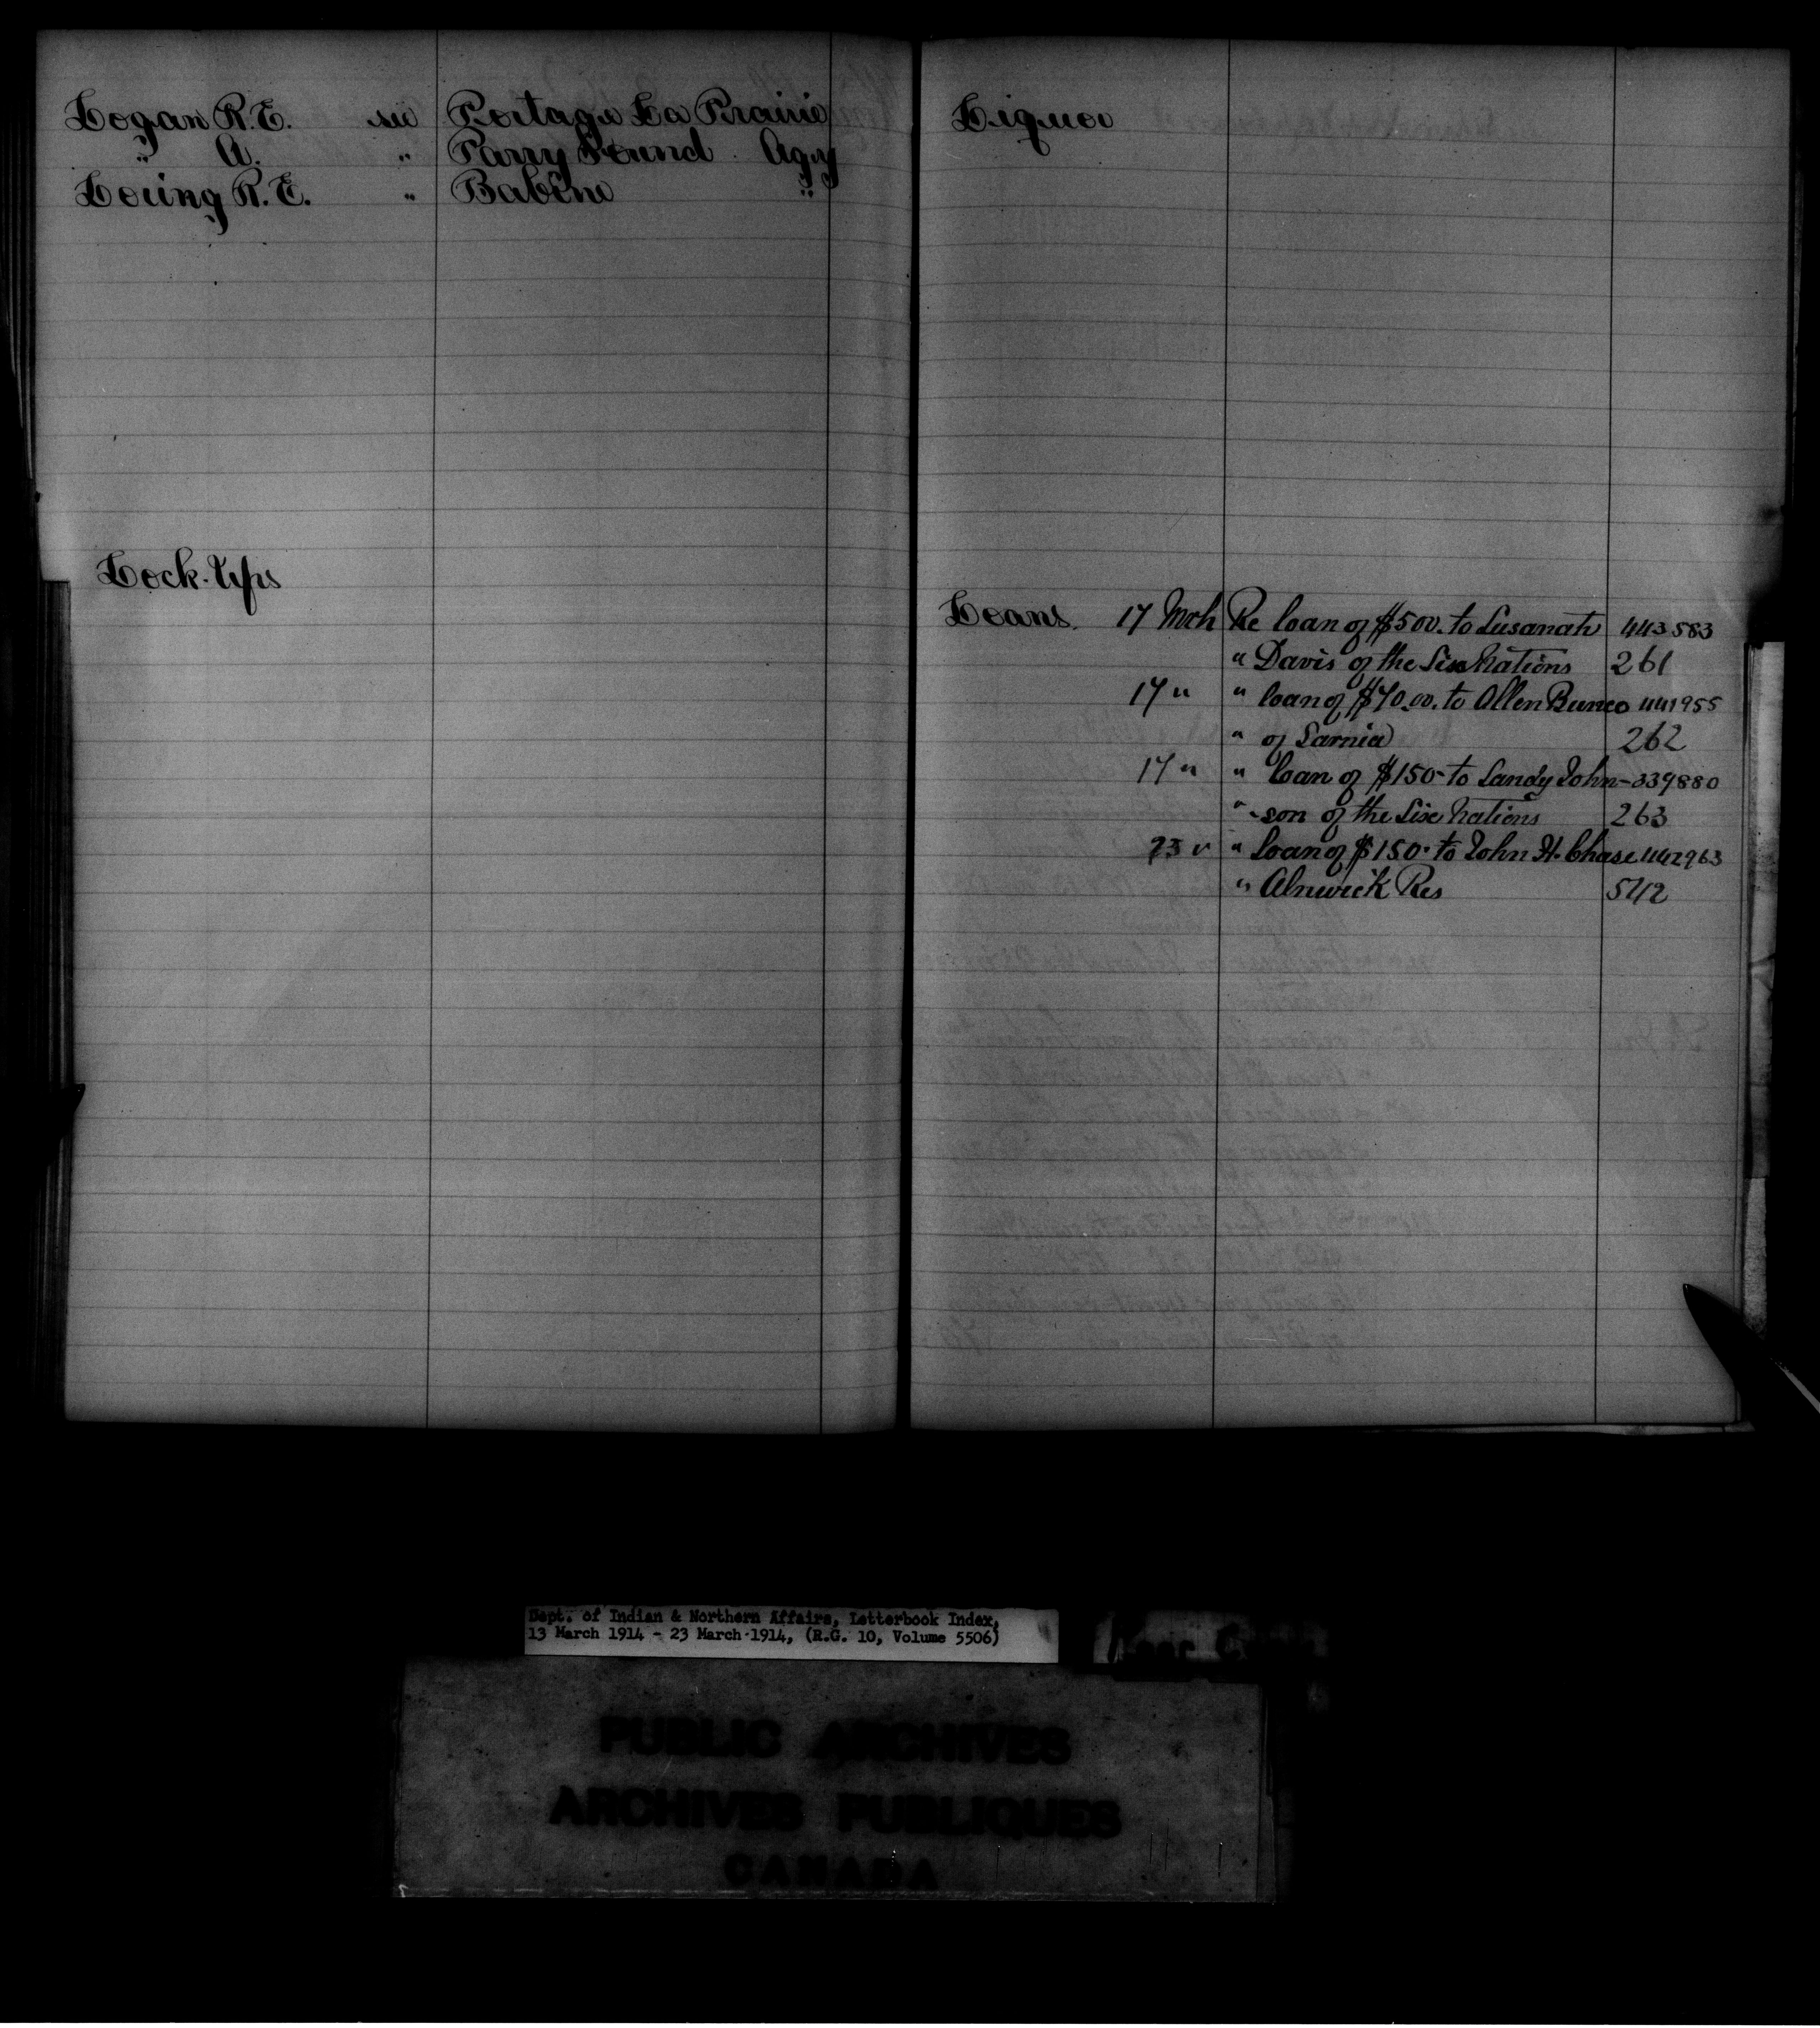 Logan R.E. see Portage La Prairie
" A. " Parry Sound Agcy
Loring R.E. " Babine "
Lock-Ups
Liquor
Loans. 17 Mch Re loan of $500. to Susanah 443583
" Davis of the Six Nations 261
17 " " loan of $70.00. to Allen Bunco 441955
" of Sarnia 262
17 " " loan of $150- to Sandy John- 339880
" -son of the Six Nations 263
23 " " loan of $150. to John H. Chase 442963
" Alnwick Res 542
Dept. of Indian & Northern Affairs, Letterbook Index,
13 March 1914 - 23 March 1914, (R.G. 10, Volume 5506)
PUBLIC ARCHIVES
ARCHIVES PUBLIQUES
CANADA